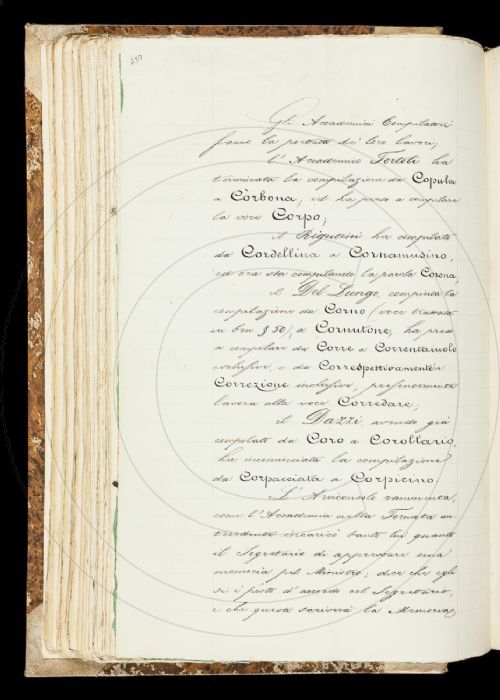 230
Gli Accademici Compilatori
fanno la portata dei loro lavori;
l'Accademico Tortoli ha
terminata la compilazione da Copula
a Còrbona; ed ha preso a compilare
la voce Corpo;
il Rigutini ha compilato
da Cordellina a Cornamusino,
ed ora sta compilando la parola Corona;
il Del Lungo, compiuta la
compilazione da Corno (voce trattata
in ben § 50), a Cornutone, ha preso
a compilare da Corre a Correntaiuolo
inclusive, e da Correspettivamente a
Correzione inclusive, presentemente
lavora alla voce Corredare;
il Dazzi avendo già
compilato da Coro a Corollario,
ha incominciata la compilazione
da Corpacciata a Corpicino.
L'Arciconsolo rammenta,
come l'Accademia nella Tornata an-
tecedente incaricò tanto lui quanto
il Segretario di apprestare una
memoria pel Ministro; dice che egli
si è posto d'accordo col Segretario,
e che questi scriverà la Memoria,